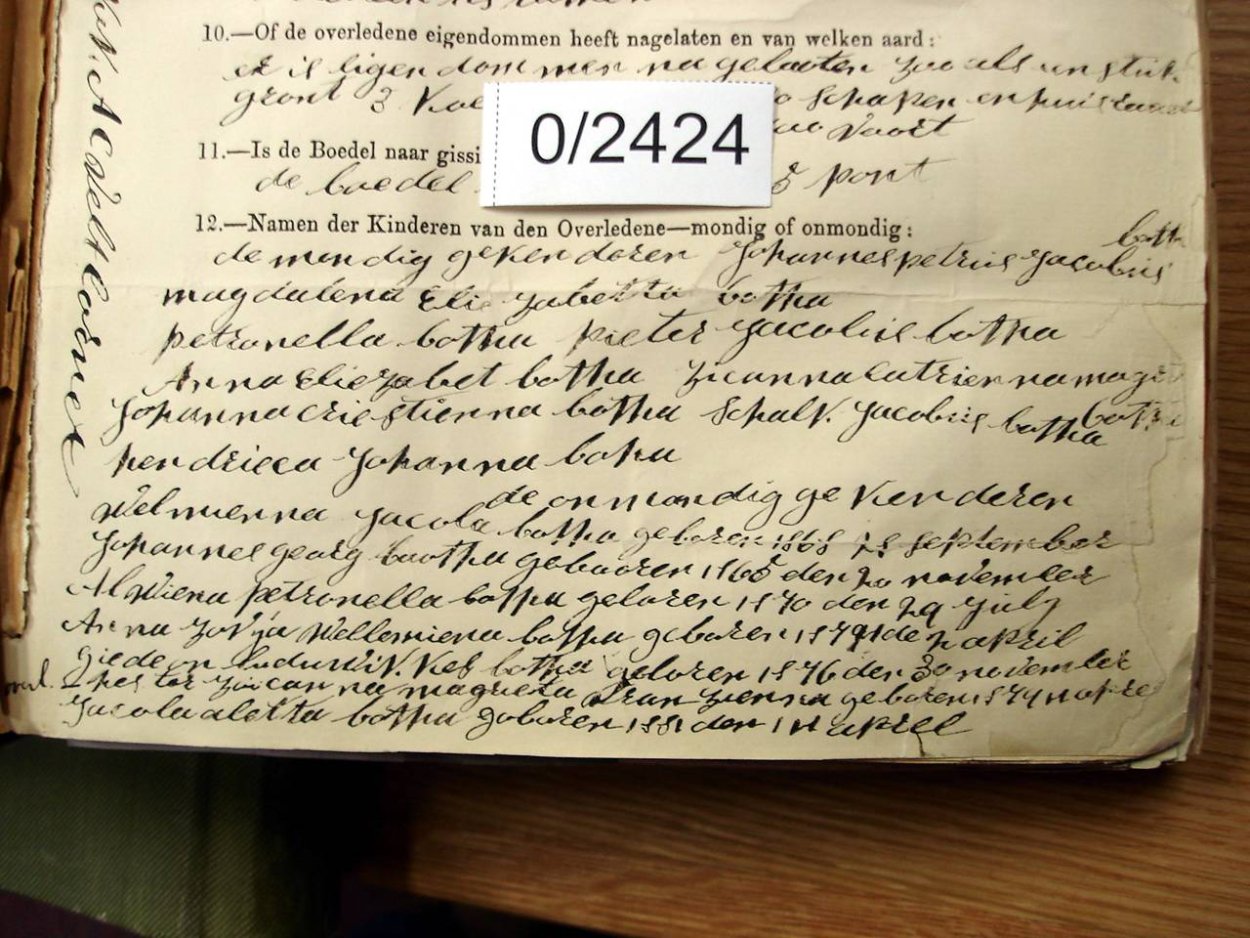 10.—Of de overledene eigendommen heeft nagelaten en van welken aard:
er is eigendommen na gelaaten zoo als un stuk
gront 3 schapen en huis
voort
11.—Is de Boedel naar gissi
de boedel pont
0/2424
12.—Namen der Kinderen van den Overledene—mondig of onmondig:
de mondig ge kenderen Johannes petrus Jacobus
both
magdalena Elie zabetta botha
petronella botha pieter Jacobus botha
Anna Eliezabet botha
Johanna criestienna botha Schalk Jacobus botha
hendrieca Johanna boha
de onmondig ge kenderen
Welmienna Jacoba botha geboren 1868 28 September
Johannes georg bootha gebooren den 20 november
Alwiena petronella botha geboren 1870 den 29 July
Anna zovja Wellemiena botha geboren de april
giedeon botha geboren 1876 den 30 november
magrieta geboren
Jacoba aletta botha geboren 1881 den april